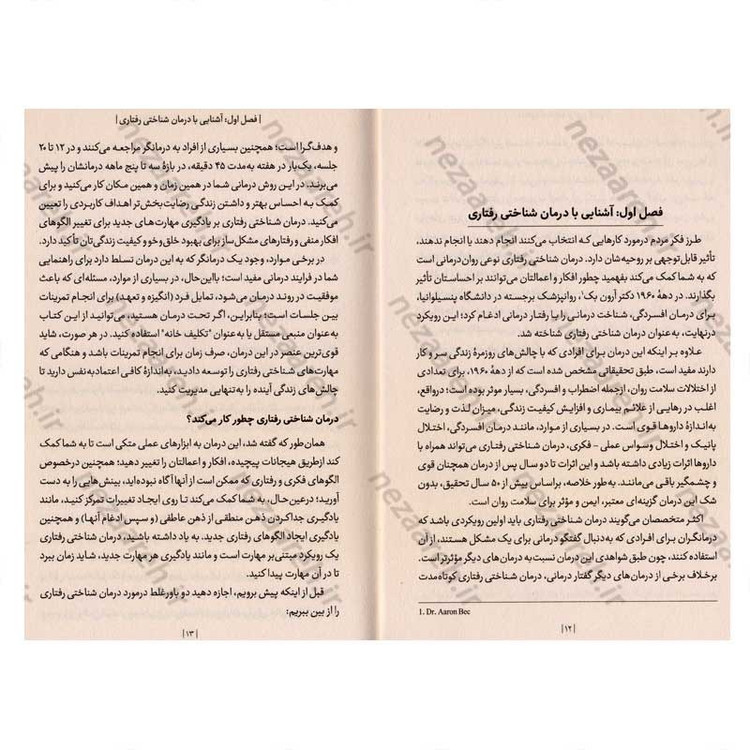 فصل اول: آشنایی با درمان شناختی رفتاری
طرز فکر مردم درمورد کارهایی که انتخاب می‌کنند انجام دهند یا انجام ندهند،
تأثیر قابل‌توجهی بر روحیه‌شان دارد. درمان شناختی رفتاری نوعی روان درمانی است
که به شما کمک می‌کند بفهمید چطور افکار و اعمالتان می‌توانند بر احساستان تأثیر
بگذارند. در دههٔ ۱۹۶۰ دکتر آرون بک۱، روانپزشک برجسته در دانشگاه پنسیلوانیا،
برای درمان افسردگی، شناخت درمانی را با رفتار درمانی ادغام کرد؛ این رویکرد
درنهایت، به‌عنوان درمان شناختی رفتاری شناخته شد.
علاوه بر اینکه این درمان برای افرادی که با چالش‌های روزمرهٔ زندگی سر و کار
دارند مفید است، طبق تحقیقاتی مشخص شده است که از دههٔ ۱۹۶۰، برای تعدادی
از اختلالات سلامت روان، ازجمله اضطراب و افسردگی، بسیار موثر بوده است؛ درواقع،
اغلب در رهایی از علائم بیماری و افزایش کیفیت زندگی، میزان لذت و رضایت
به‌اندازهٔ داروها قوی است. در بسیاری از موارد، مانند درمان افسردگی، اختلال
پانیک و اختلال وسواس عملی - فکری، درمان شناختی رفتاری می‌تواند همراه با
داروها اثرات زیادی داشته باشد و این اثرات تا دو سال پس از درمان همچنان قوی
و چشمگیر باقی می‌مانند. به‌طور خلاصه، براساس بیش از ۵۰ سال تحقیق، بدون
شک این درمان گزینه‌ای معتبر، ایمن و مؤثر برای سلامت روان است.
اکثر متخصصان می‌گویند درمان شناختی رفتاری باید اولین رویکردی باشد که
درمانگران برای افرادی که به‌دنبال گفتگو درمانی برای یک مشکل هستند، از آن
استفاده کنند، چون طبق شواهدی این درمان نسبت به درمان‌های دیگر مؤثرتر است.
برخلاف برخی از درمان‌های دیگر گفتار درمانی، درمان شناختی رفتاری کوتاه‌مدت
1. Dr. Aaron Bec
|۱۲|
| فصل اول: آشنایی با درمان شناختی رفتاری |
و هدف‌گرا است؛ همچنین بسیاری از افراد به درمانگر مراجعه می‌کنند و در ۱۲ تا ۲۰
جلسه، یک‌بار در هفته به‌مدت ۴۵ دقیقه، در بازهٔ سه تا پنج ماهه درمانشان را پیش
می‌برند. در این روش درمانی شما در همین زمان و همین مکان کار می‌کنید و برای
کمک به احساس بهتر و داشتن زندگی رضایت‌بخش‌تر اهداف کاربردی را تعیین
می‌کنید. درمان شناختی رفتاری بر یادگیری مهارت‌های جدید برای تغییر الگوهای
افکار منفی و رفتارهای مشکل‌ساز برای بهبود خلق‌وخو و کیفیت زندگی‌تان تأکید دارد.
در برخی موارد، وجود یک درمانگر که به این درمان تسلط دارد برای راهنمایی
شما در فرایند درمانی مفید است؛ بااین‌حال، در بسیاری از موارد، مسئله‌ای که باعث
موفقیت در روند درمان می‌شود، تمایل فرد (انگیزه و تعهد) برای انجام تمرینات
بین جلسات است؛ بنابراین، اگر تحت درمان هستید، می‌توانید از این کتاب
به‌عنوان منبعی مستقل یا به‌عنوان "تکلیف خانه" استفاده کنید. در هر صورت، شاید
قوی‌ترین عنصر در این درمان، صرف زمان برای انجام تمرینات باشد و هنگامی که
مهارت‌های شناختی رفتاری را توسعه دادید، به‌اندازهٔ کافی اعتمادبه‌نفس دارید تا
چالش‌های زندگی آینده را به‌تنهایی مدیریت کنید.
درمان شناختی رفتاری چطور کار می‌کند؟
همان‌طور که گفته شد، این درمان به ابزارهای عملی متکی است تا به شما کمک
کند ازطریق هیجانات پیچیده، افکار و اعمالتان را تغییر دهید؛ همچنین درخصوص
الگوهای فکری و رفتاری که ممکن است از آنها آگاه نبوده‌اید، بینش‌هایی را به دست
آورید؛ درعین‌حال، به شما کمک می‌کند تا روی ایجاد تغییرات تمرکز کنید، مانند
یادگیری جداکردن ذهن منطقی از ذهن عاطفی (و سپس ادغام آنها) و همچنین
یادگیری ایجاد الگوهای رفتاری جدید. به یاد داشته باشید، درمان شناختی رفتاری
یک رویکرد مبتنی‌بر مهارت است و مانند یادگیری هر مهارت جدید، شاید زمان ببرد
تا در آن مهارت پیدا کنید.
قبل از اینکه پیش برویم، اجازه دهید دو باور غلط درمورد درمان شناختی رفتاری
را از بین ببریم:
|۱۳|
nezaarsh.ir